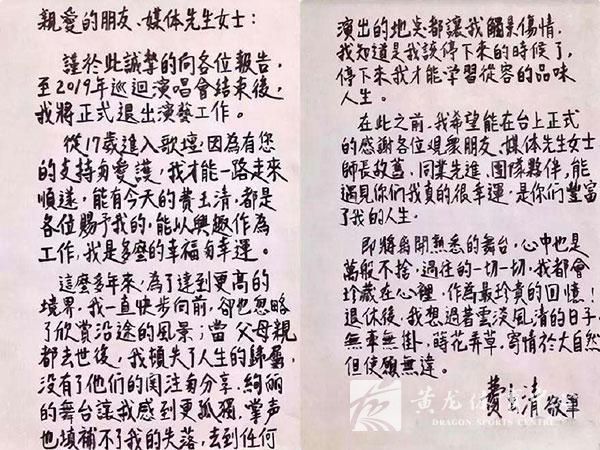 親愛的朋友、媒体先生女士：
謹於此誠摯的向各位報告，
至2019年巡迴演唱會結束後，
我將正式退出演藝工作。
從17歲進入歌壇，因為有您
的支持与愛護，我才能一路走來
順遂，能有今天的費玉清，都是
各位賜予我的，能以興趣作為
工作，我是多麼的幸福与幸運。
這麼多年來，為了達到更高的
境界，我一直快步向前，卻也忽略
了欣賞沿途的風景；當父母親
都去世後，我頓失了人生的歸屬，
沒有了他們的関注与分享，絢麗
的舞台讓我感到更孤獨，掌声
也填補不了我的失落，去到任何
演出的地点都讓我觸景傷情，
我知道是我該停下來的時候了，
停下來我才能學習從容的品味
人生。
在此之前，我希望能在台上正式
的感谢各位觀衆朋友、媒体先生女士
師長故舊、同業先進、團隊夥伴，能
遇見你們我真的很幸運，是你們豐富
了我的人生。
即將離開熟悉的舞台，心中也是
萬般不捨，過往的一切一切，我都會
珍藏在心裡，作為最珍貴的回憶！
退休後，我想過著雲淡風清的日子，
無牽無掛，蒔花弄草，寄情於大自然
但使願無違。
費玉清 敬筆
黄龙体育中心
DRAGON SPORTS CENTRE